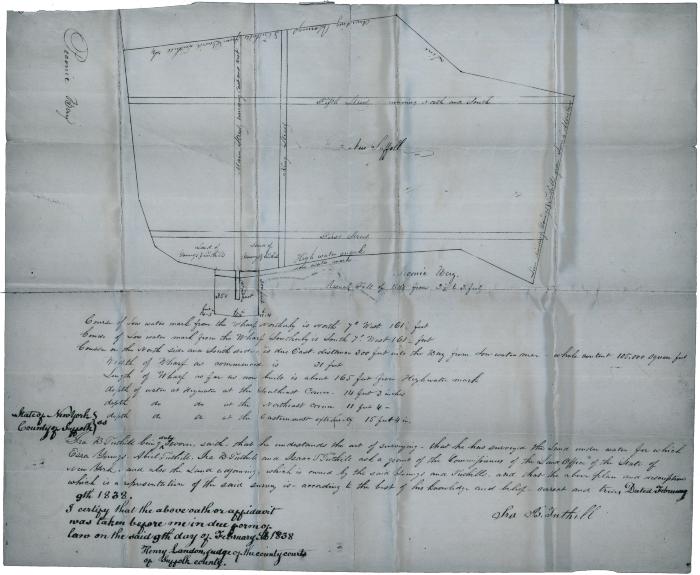 Peconic Bay
Line
Main Street
King Street
Fifth Street running North and South
New Suffolk
First Street
Land of
Land of
High water mark
low water mark
Peconic Bay.
Usual Fall of tide from 2½ to 3 feet
350
Course of low water mark from the Wharf Northerly is North 7° West 161. feet
Course of low water mark from the Wharf Southerly is South 7° West 161. feet
Course on the North side and South side is due East distance 300 feet into the Bay from low water mark whole content 105,000 square feet
Width of Wharf as commenced is 31 feet
Length of Wharf as far as now built is about 165 feet from Highwater mark
depth of water at Highwater at the Southeast Corner 14 feet 3 inches
depth do do at the Northeast Corner 11 feet 4 -
depth do do at the Easternmost extremity 15 feet 4 in.
State of New York } ss
County of Suffolk }
Ira B Tuthill being duly sworn, said, that he understands the art of surveying. that he has surveyed the Land under water for which
Ezra Youngs Abiel Tuthill. Ira B Tuthill and Tuthill ask a grant of the Commissioners of the Land Office of the State of
New York. and also the Land adjoining, which is owned by the said Youngs and Tuthills, and that the above plan and description
which is a representation of the said survey is according to the best of his knowledge and belief correct and true, Dated February
9th 1838.
Ira B. Tuthill
I certify that the above oath or affidavit
was taken before me in due form of
law on the said 9th day of February AD 1838
Henry Landon, judge of the county courts
of Suffolk county.